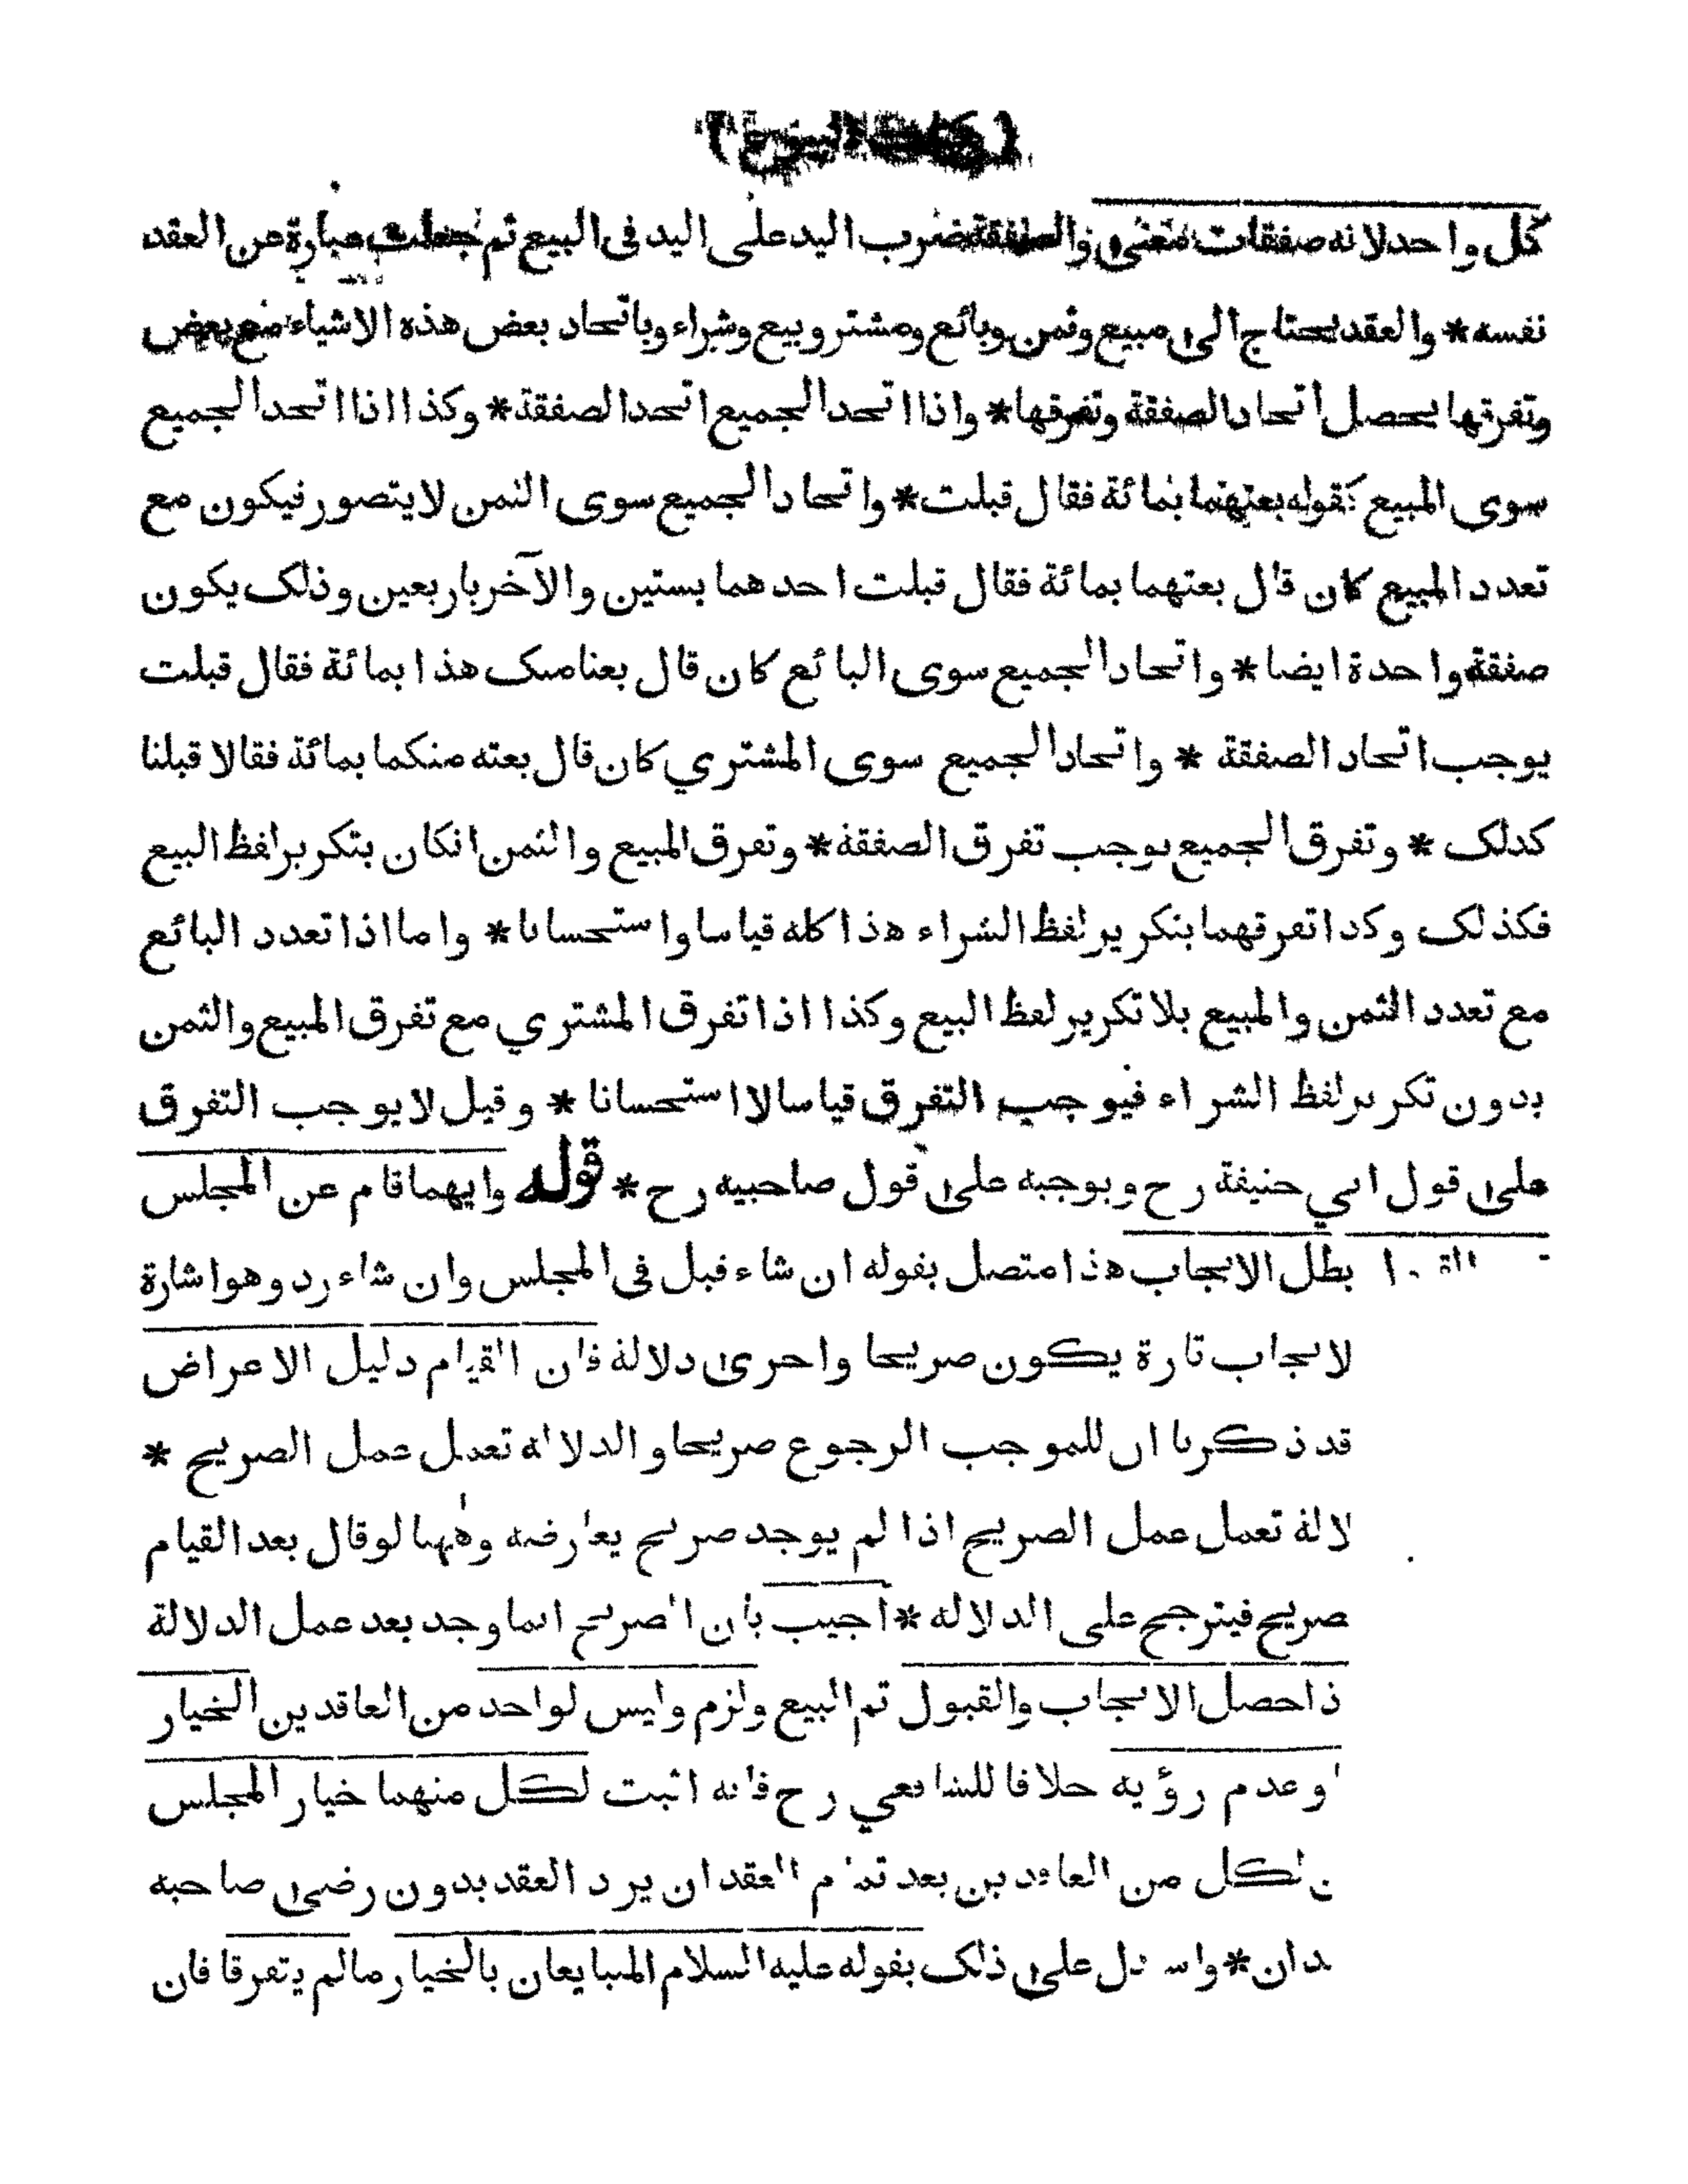 ( كتاب البيوع )
كل واحد لانه صفقات معنى والصفقة ضرب اليد على اليد فى البيع ثم جعلت عبارة عن العقد
نفسه * والعقد يحتاج الى مبيع وثمن وبائع ومشتر وبيع وشراء وباتحاد بعض هذه الاشياء مع بعض
وتفرقها يحصل اتحاد الصفقة وتفرقها * واذا اتحد الجميع اتحد الصفقة * وكذا اذا اتحد الجميع
سوى المبيع كقوله بعتهما بمائة فقال قبلت * واتحاد الجميع سوى الثمن لا يتصور فيكون مع
تعدد المبيع كان قال بعتهما بمائة فقال قبلت احدهما بستين والآخر باربعين وذلك يكون
صفقة واحدة ايضا * واتحاد الجميع سوى البائع كان قال بعنا منك هذا بمائة فقال قبلت
يوجب اتحاد الصفقة * واتحاد الجميع سوى المشتري كان قال بعته منكما بمائة فقالا قبلنا
كذلك * وتفرق الجميع يوجب تفرق الصفقة * وتفرق المبيع والثمن انكان بتكرير لفظ البيع
فكذلك وكذا تفرقهما بتكرير لفظ الشراء هذا كله قياسا واستحسانا * واما اذا تعدد البائع
مع تعدد الثمن والمبيع بلا تكرير لفظ البيع وكذا اذا تفرق المشتري مع تفرق المبيع والثمن
بدون تكرير لفظ الشراء فيوجب التفرق قياسا لا استحسانا * وقيل لا يوجب التفرق
على قول ابي حنيفة رح ويوجبه على قول صاحبيه رح * قوله وايهما قام عن المجلس
بطل الايجاب هذا متصل بقوله ان شاء قبل فى المجلس وان شاء رد وهو اشارة
لايجاب تارة يكون صريحا واخرى دلالة فان القيام دليل الاعراض
قد ذكرنا ان للموجب الرجوع صريحا والدلالة تعمل عمل الصريح *
لالة تعمل عمل الصريح اذا لم يوجد صريح يعارضه وههنا لو قال بعد القيام
صريح فيترجح على الدلالة * اجيب بان الصريح انما وجد بعد عمل الدلالة
ذا حصل الايجاب والقبول تم البيع ولزم وليس لواحد من العاقدين الخيار
او عدم رؤية خلافا للشافعي رح فانه اثبت لكل منهما خيار المجلس
ن لكل من العاقدين بعد تمام العقد ان يرد العقد بدون رضى صاحبه
دان * واستدل على ذلك بقوله عليه السلام المتبايعان بالخيار مالم يتفرقا فان